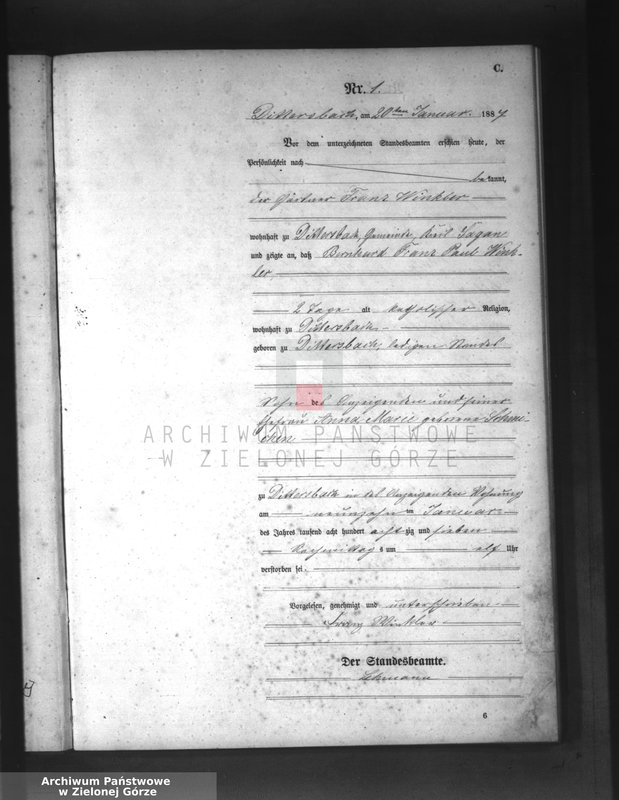 C.
Nr. 1.
Dittersbach, am 20ten Januar 1887
Vor dem unterzeichneten Standesbeamten erschien heute, der
Persönlichkeit nach
bekannt,
der Gärtner Franz Winkler
wohnhaft zu Dittersbach, Gemeinde, Kreis Sagan
und zeigte an, daß Bernhard Franz Paul Wink-
ler
2 Tage alt katholischer Religion,
wohnhaft zu Dittersbach
geboren zu Dittersbach, ledigen Standes
Sohn des Anzeigenden und seiner
Ehefrau Anna Marie geborene
zu Dittersbach in des Anzeigenden Wohnung
am neunzehn ten Januar
des Jahres tausend acht hundert achtzig und sieben
Nachmittags um elf Uhr
verstorben sei.
Vorgelesen, genehmigt und unterschrieben
Franz Winkler
Der Standesbeamte.
Lehmann
6
ARCHIWUM PAŃSTWOWE
W ZIELONEJ GÓRZE
Archiwum Państwowe
w Zielonej Górze